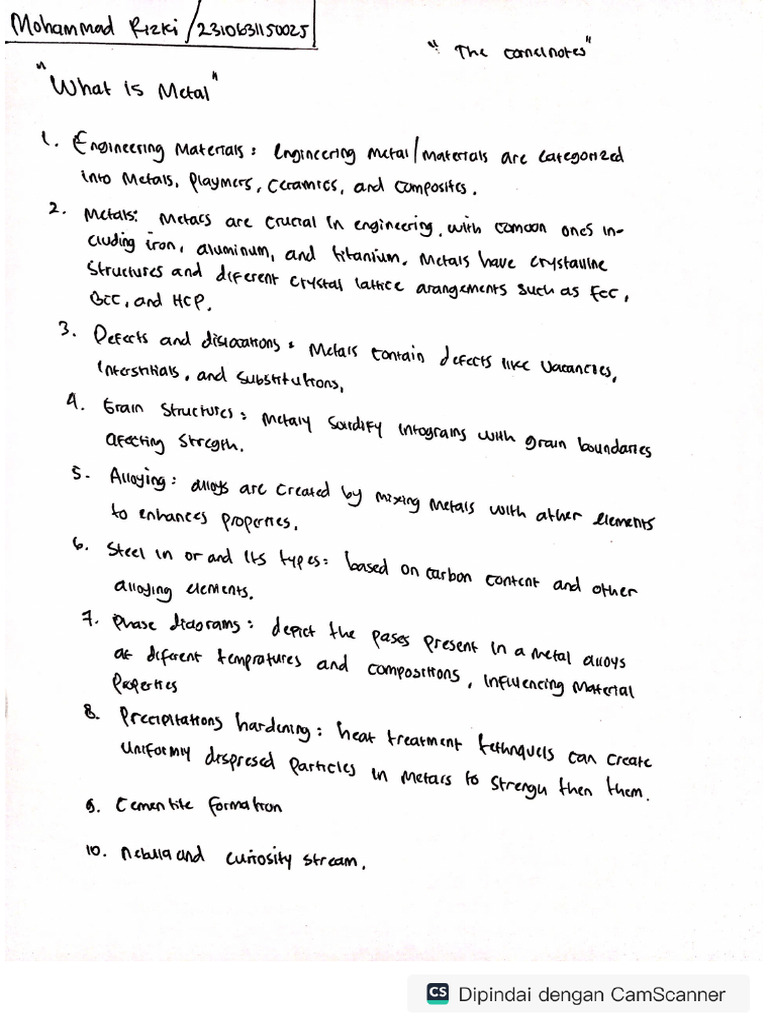 Mohammad Rizki / 2310631150025
" The cornelnotes"
"What is Metal"
1. Engineering Materials : Engineering metal/materials are categorized
into Metals, Playmers, Ceramics, and composites.
2. Metals: Metals are crucial in engineering, with comoon ones in-
cluding iron, aluminum, and titanium. Metals have crystalline
structures and diferent crystal lattice arangements such as FCC,
BCC, and HCP.
3. Defects and dislocations : Metals contain defects like vacancies,
interstitials, and substitutions,
4. Grain Structures : Metaly solidify intograins with grain boundaries
afecting Stregth.
5. Alloying : alloys are created by mixing metals with other elements
to enhances properties.
6. Steel in or and its types: based on carbon content and other
alloying elements.
7. Phase diagrams : depict the pases present in a metal alloys
at diferent tempratures and compositions, influencing Material
Properties
8. Precipitations hardening : heat treatment tethnquels can create
uniformly despresed particles in metals to strengu then them.
9. Cementite formation
10. nebula and curiosity stream.
CS Dipindai dengan CamScanner